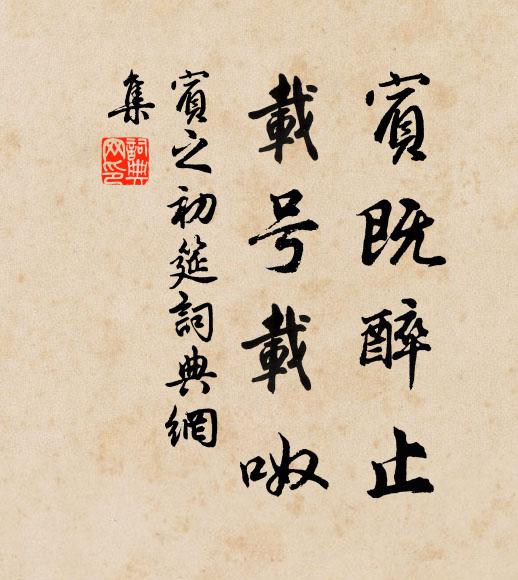 賓既醉止
載号載呶
賓之初筵詞典網
集
詞典
网印